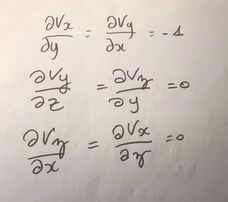 ∂Vx/∂y = ∂Vy/∂x = -1
∂Vy/∂z = ∂Vz/∂y = 0
∂Vz/∂x = ∂Vx/∂z = 0